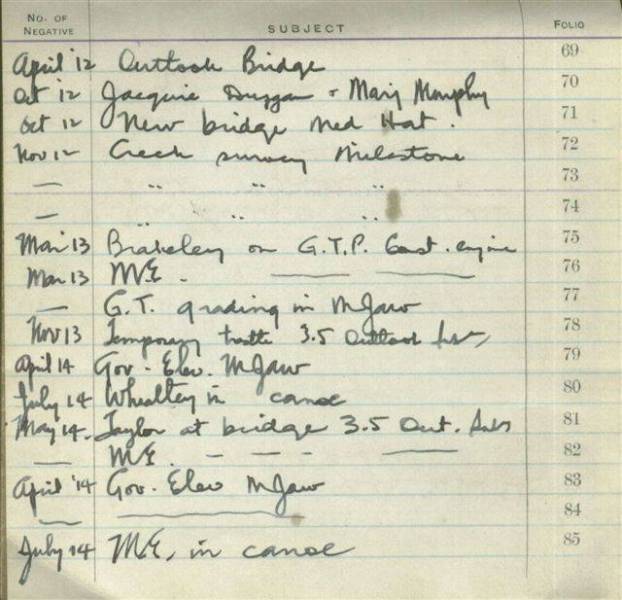 No. of Negative SUBJECT Folio
April '12 Outlook Bridge 69
Oct '12 Jacquie Duggan & Mary Murphy 70
Oct 12 New bridge Med Hat. 71
Nov 12 Creek survey Milestone 72
— " " " 73
— " " " 74
Mar 13 on G.T.P. engine 75
Mar 13 ME. — — 76
— G.T. grading in MJaw 77
Nov 13 Temporary trestle 3.5 Outlook 78
April 14 Gov. Elev. MJaw 79
July 14 Wheatley in canoe 80
May 14. Taylor at bridge 3.5 Out. Subs 81
— ME. – — – — 82
April '14 Gov. Elev MJaw 83
— — 84
July 14 M.E, in canoe 85